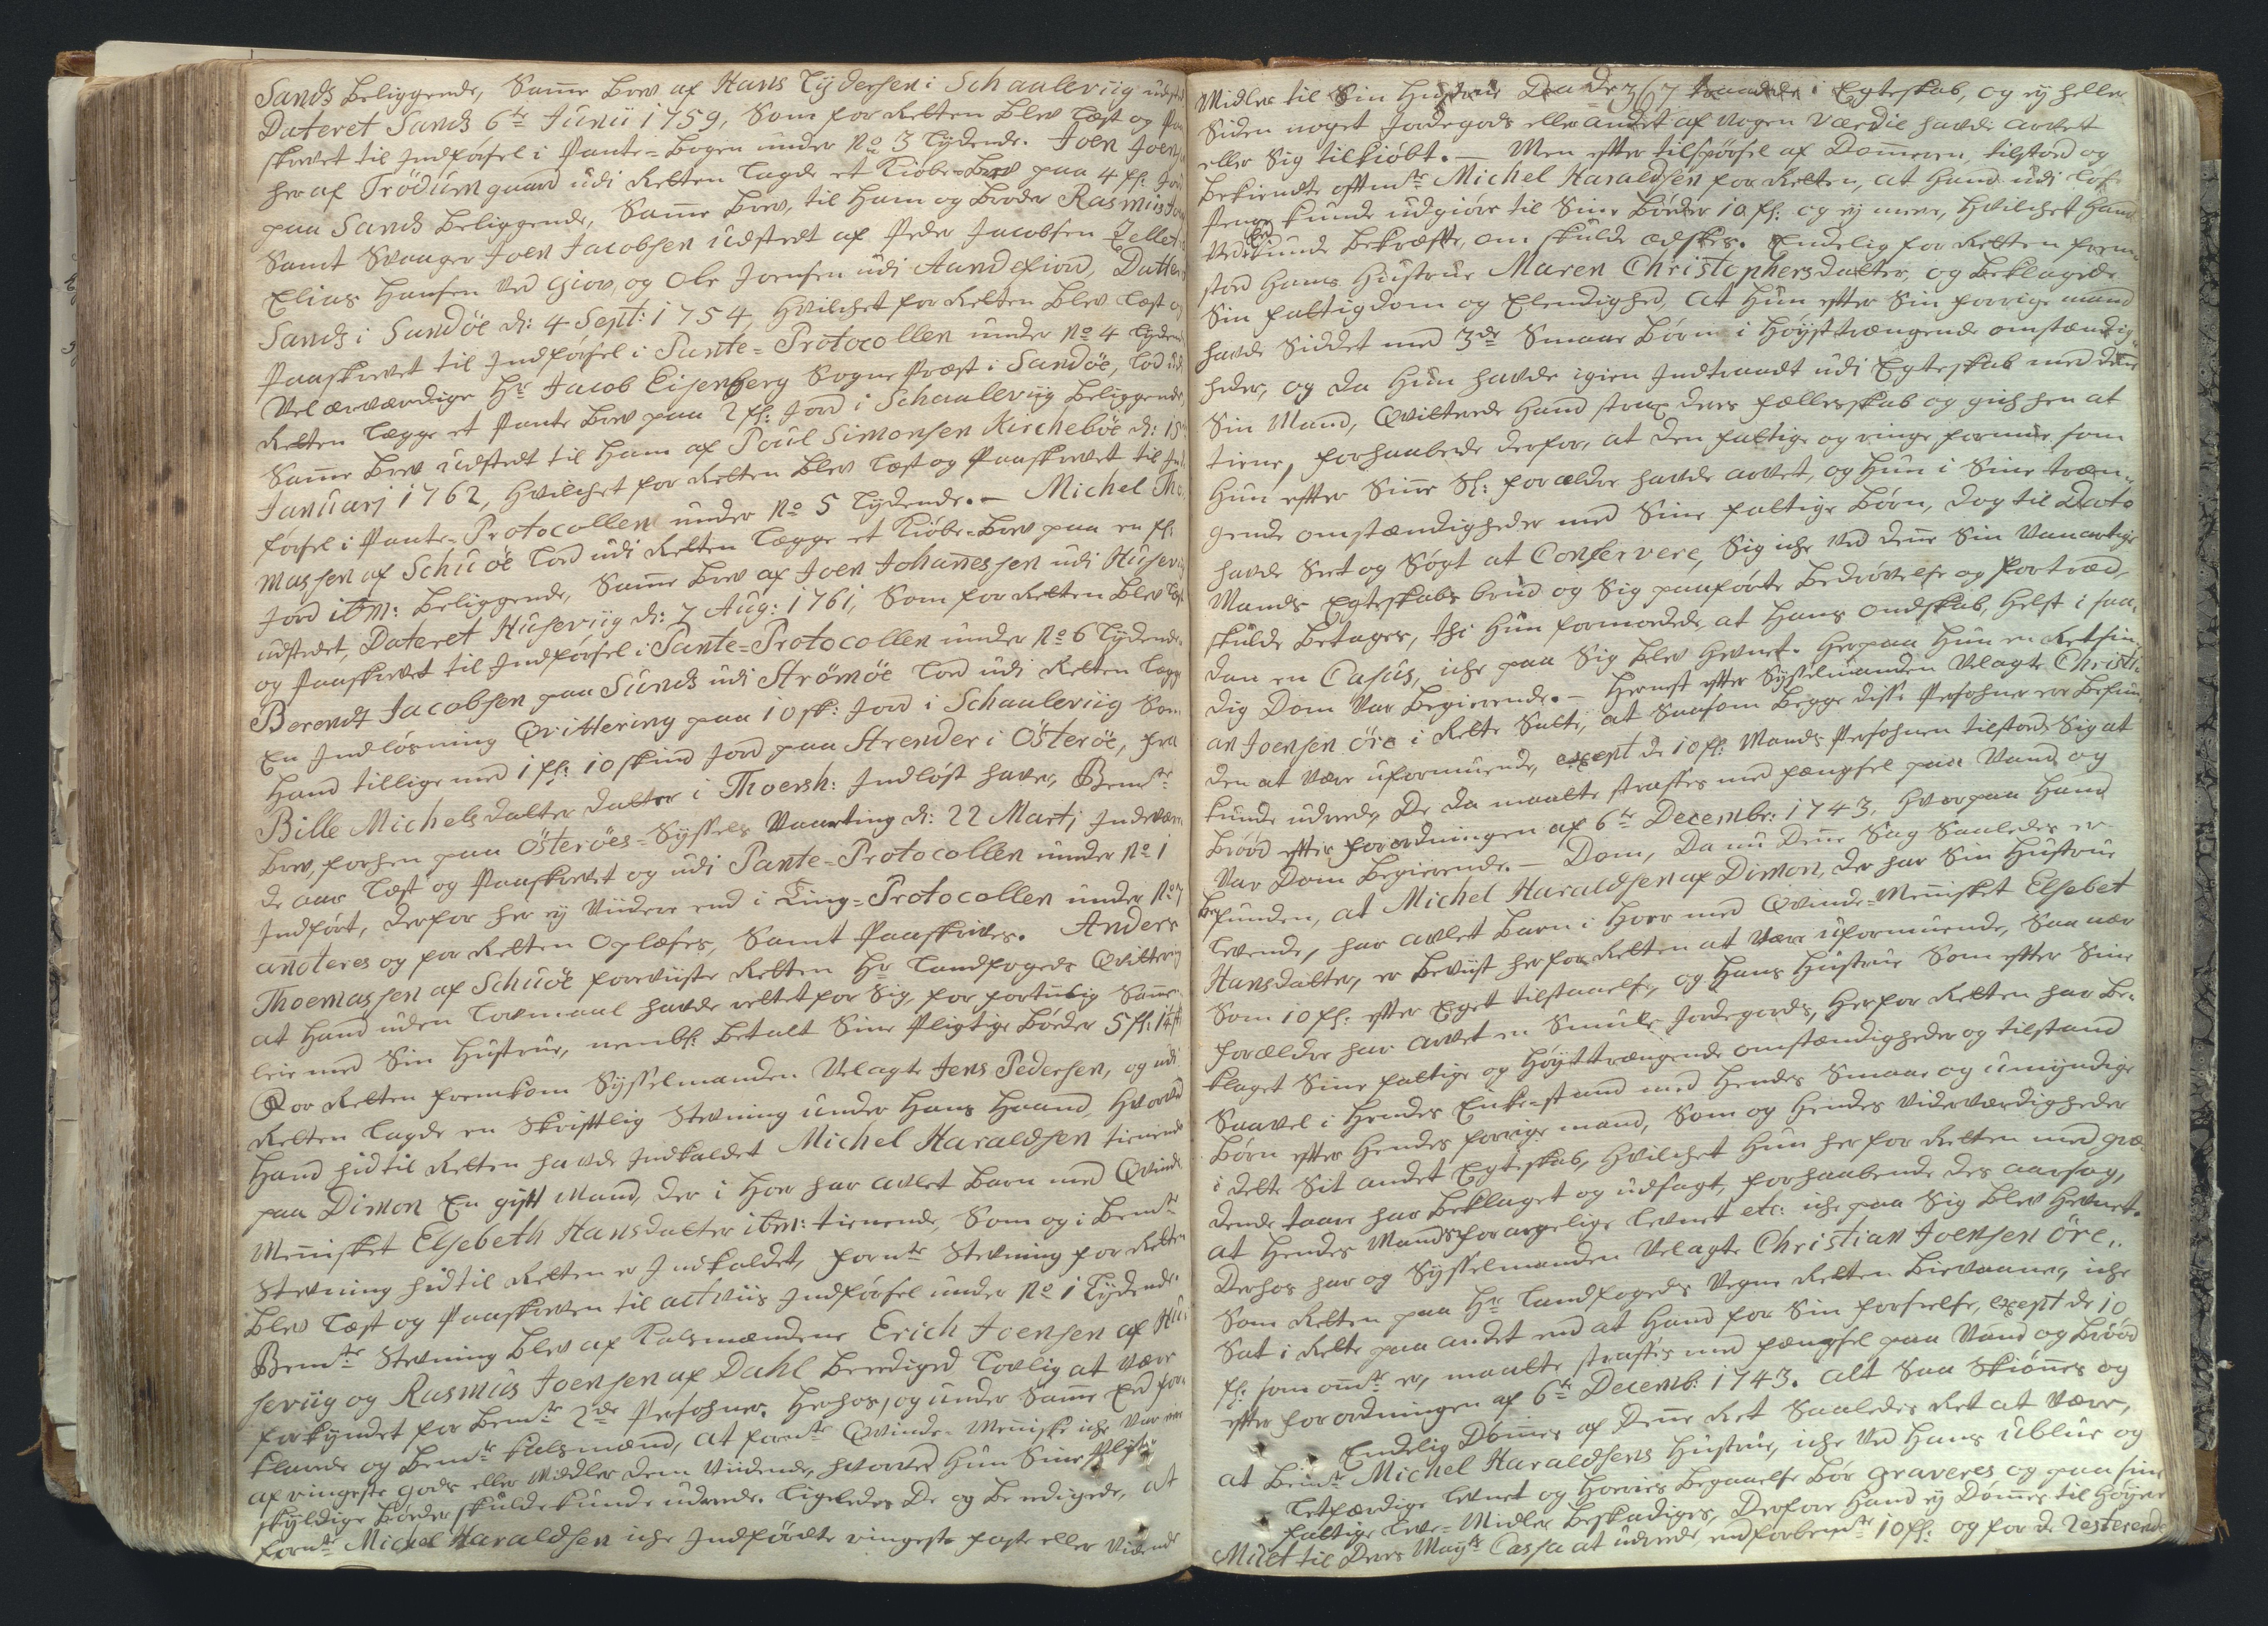 Sands beliggende, Samme brev af Hans Tydersen i Schaaleviig udsted
Dateret Sands 6te Junii 1759, Som for Retten blev læst og paa
skrevet til Indførsel i Pante-bogen under No 3 lydende. Joen Joensen
her af Trödum gaard udi Retten lagde et Kiøbe-brev paa 4 fl: Jord
paa Sands beliggende, Samme brev, til ham og broder Rasmus Joen
Samt Svauger Joen Jacobsen udstedt af Peder Jacobsen
Elias Hansen ved Giov, og Ole Joensen udi Aandefiord, Datteret
Sands i Sandöe d: 4 Sept: 1754, hvilchet for Retten blev læst og
Paaskrevet til Indførsel i Pante-Protocollen under No 4 lydende
Vel ærværdige Hr Jacob Eisenberg Sogne Præst i Sandöe, lod udi
Retten lægge et Pante brev paa 2 fl: Jord i Schaaleviig beliggende,
Samme brev udstedt til ham af Poul Simonsen Kircheböe d: 15
Januarj 1762, hvilchet for Retten blev læst og Paaskrevet til Ind-
førsel i Pante-Protocollen under No 5 lydende. - Michel Tho-
massen af Schuöe lod udi Retten lægge et Kiøbe-brev paa en fl:
Jord ibm: beliggende, Samme brev af Joen Johannessen udi Huseviig
udstedet, Dateret Huseviig d: 7 Aug: 1761, Som for Retten blev læst
og Paaskrevet til Indførsel i Pante-Protocollen under No 6 lydende.
Berendt Jacobsen paa Sunds udi Strömöe lod udi Retten lægge
En Indløsning Qvittering paa 10 sk: Jord i Schaaleviig Som
hand tillige med 1 fl: 10 skind Jord paa Strender i Österöe, fra
Bille Michelsdatter datter i Thoersh: Indløst haver, Bemte
brev, forhen paa Österöes-Syssels Vaarting d: 22 Martj Indeværen-
de aar læst og Paaskrevet og udi Pante-Protocollen under No 1
Indført, derfor her ey viidere end i Ting-Protocollen under No 7
annoteres og for Retten Oplæses, Samt Paaskrives. Anders
Thoemassen af Schuöe foreviiste Retten Hr Landfogeds Qvittering
at hand uden Lovmaal havde rettet for Sig, for fortiilig Samme-
leie med Sin Hustrue, nembl: betalt Sine Pligtige bøder 5 fl: 14 sk
For Retten fremkom Sysselmanden Velagte Jens Pedersen, og udi
Retten lagde en Skriftlig Stevning under hans haand, hvorved
hand hid til Retten havde Indkaldet Michel Haraldsen tienende
paa Dimon En gift Mand, der i hoer har avlet barn med Qvinde
Mennisket Elsebeth Hansdatter ibm: tienende, Som og i Bemte
Stevning hid til Retten er Indkaldet, fornte Stevning for Retten
blev læst og Paaskreven til act viis Indførsel under No 1 lydende.
Bemte Stevning blev af Kalsmændene Erich Joensen af Hu-
seviig og Rasmus Joensen af Dahl beediged Lovlig at være
forkyndet for bemte 2de Persohner. Herhos, og under Samme Eed for-
klarede og bemte kalsmænd, at fornte Qvinde-Menniske iche var eier
af ringeste gods eller Midler dem Vidende, hvorved hun Sine Pligt
skyldige bøder skulde kunde udrede. Ligeledes De og beedigede, at
fornte Michel Haraldsen iche Indførdte ringeste faste eller Vidende
Midler til Sin Hustrue Da de 3/67 traadde i Egteskab, og ey heller
Siden noget Jordegods eller andet af nogen Værdie havde arvet
eller Sig tilkiøbt. - Men efter tilspørsel af Dommeren, tilstoed og
bekiendte oftmte Michel Haraldsen for Retten, at hand udi løse
Penge kunde udgiøre til Sine bøder 10 fl: og ey mere, hvilchet hand
Ved Eed kunde bekræfte, om skulde eskes. Endelig for Retten frem-
stoed hans Hustrue Maren Christophersdatter, og beklagede
Sin fattigdom og Elendighed, at hun efter Sin forrige mand
havde Siddet med 3de Smaae børn i høysttrængende omstændig-
heder, og da hun havde igien Indtraadt udi Egteskab med denne
Sin Mand, Qvitterede hand strax deres fællesskab og gich hen at
tiene, forhaabede derfor, at den fattige og ringe formue, som
hun efter Sine Sl: forældre havde arvet, og hun i Sine træn-
gende omstændigheder med Sine fattige børn, dog til Dato
havde Seet og Søgt at Conservere, Sig iche ved denne Sin Vanartige
Mands Egteskabs brud og Sig paaførte bedrøvelse og fortræd,
skulde betages, thi hun formodede, at hans ondskab, helst i saa-
dan en Casus, iche paa Sig blev hevnet. Herpaa hun en Retsin-
dig Dom var begierende. - Hernest efter Sysselmanden Velagte Christi-
an Joensen Öre i Rette Satte, at Saasom begge disse Persohner ere befun-
den at være uformuende, except de 10 fl: Mands Persohnen tilstoed Sig at
kunde udrede, De da maatte straffes med fængsel paa Vand og
brød efter forordningen af 6te Decembr: 1743, hvorpaa hand
Var Dom begierende. - Dom, Da nu Denne Sag Saaledes er
befunden, at Michel Haraldsen af Dimon, der har Sin Hustrue
levende, har avlet barn i hoer med Qvinde-Mennisket Elsebet
Hansdatter, er beviist her for Retten at være uformuende, Saa nær
Som 10 fl: efter Eget tilstaaelse, og hans Hustrue Som efter Sine
forældre har arvet en Smule Jordegods, her for Retten har be-
klaget Sine fattige og høyst trængende omstændigheder og tilstand
Saavel i hendes Enke-stand med hendes Smaae og umyndige
børn efter hendes forrige mand, Som og hendes Viderværdigheder
i dette Sit andet Egteskab, hvilchet hun her for Retten med græ-
dende taare har beklaget og udsagt, forhaabende des aarsag,
at hendes Mands forargelige levnet etc: iche paa Sig blev hevnet.
Derhos har og Sysselmanden Velagte Christian Joensen Öre,
Som Retten paa Hr Landfogeds Vegne Retten bievaaner, iche
Sat i Rette paa andet end at hand for Sin forseelse, except de 10
fl: som omte er, maatte straffes med fængsel paa Vand og brød
efter forordningen af 6te Decemb: 1743. Alt Saa Skiønnes og
Endelig Dømmes af Denne Ret Saaledes Ret at være,
at bemte Michel Haraldsens Hustrue, iche ved hans ublue og
Letfærdige levnet og hoeries begaaelse bør graveres og paa sine
fattige leve-Midler beskadiges, Derfore hand ey Dømmes til høyere
Mulct til Deres Mayts Cassa at udrede, end forbemte 10 fl: og for de resterende